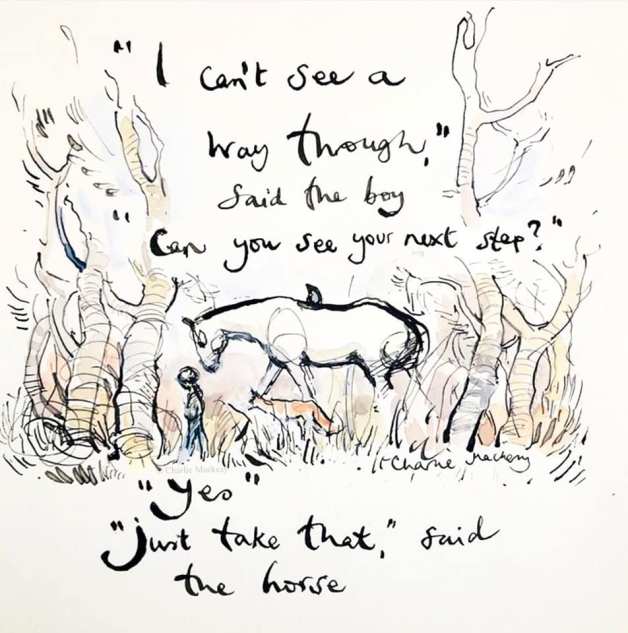 "I can't see a
way though,"
said the boy
"Can you see your next step?"
© Charlie Mackesy
Charlie Mackesy
"Yes"
"Just take that," said
the horse